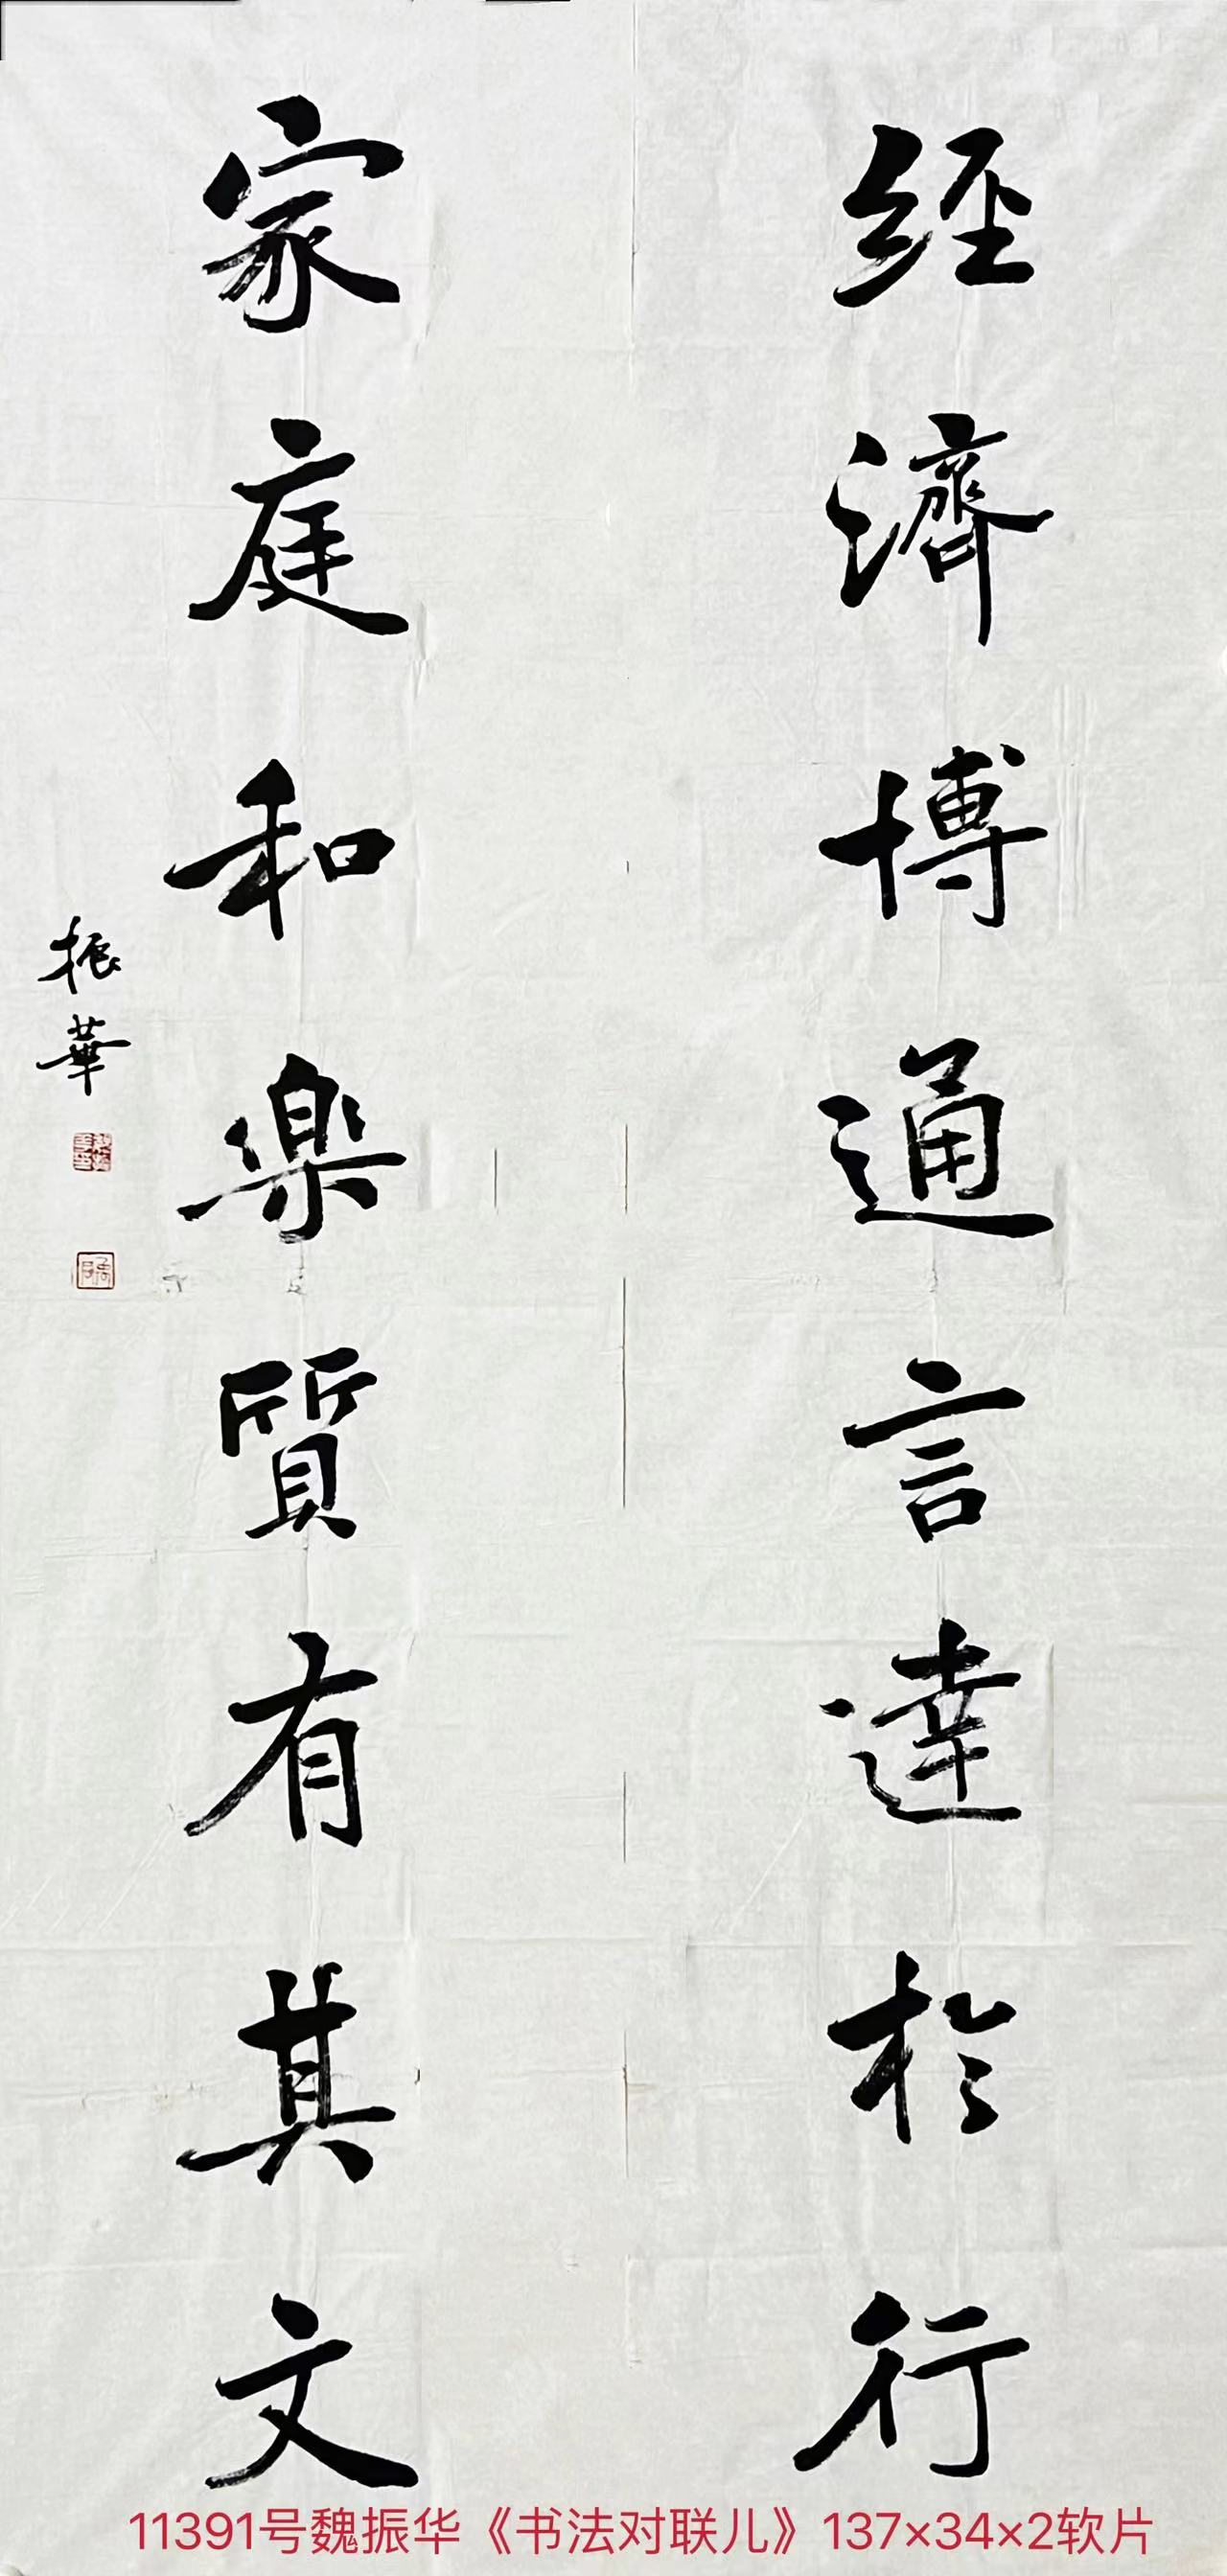 经濟博通言達於行
家庭和楽質有其文
振華
11391号魏振华《书法对联儿》137×34×2软片